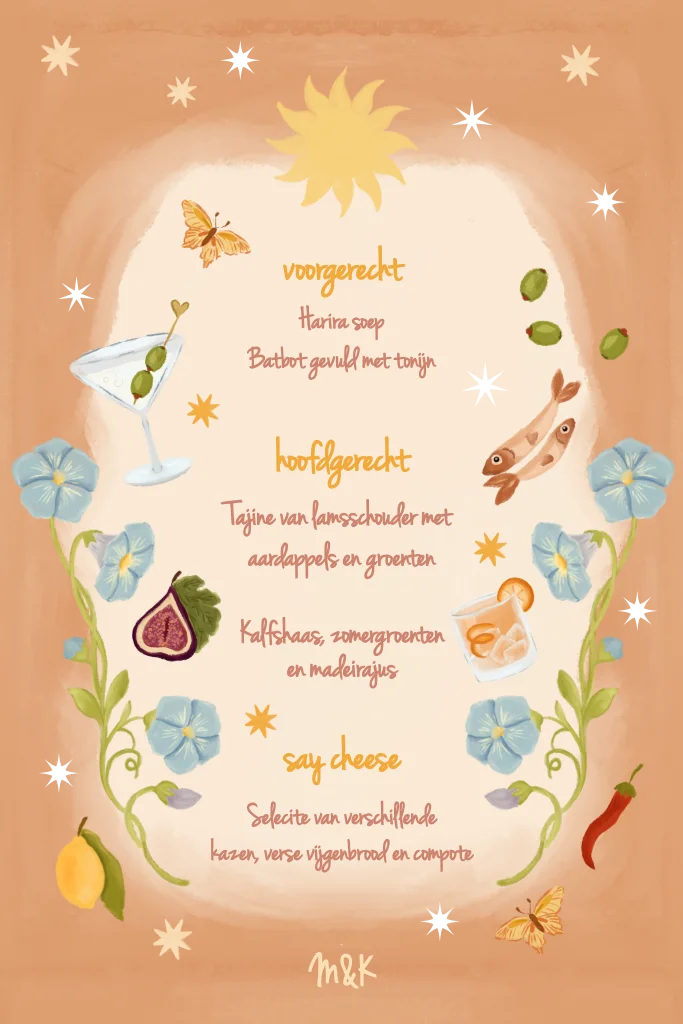 voorgerecht
Harira soep
Batbot gevuld met tonijn
hoofdgerecht
Tajine van lamsschouder met
aardappels en groenten
Kalfshaas, zomergroenten
en madeirajus
say cheese
Selecite van verschillende
kazen, verse vijgenbrood en compote
M&K